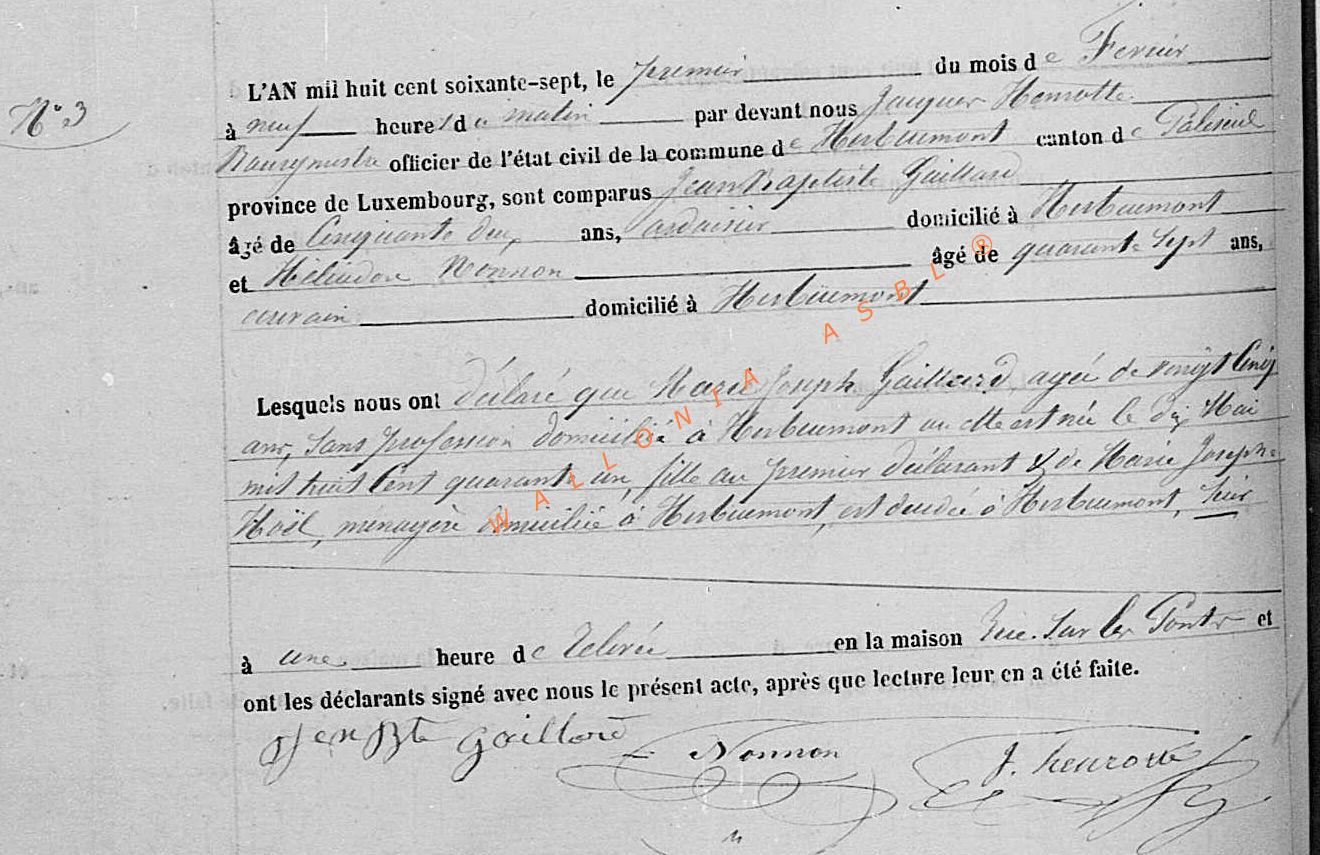 N° 3
L'AN mil huit cent soixante-sept, le premier du mois de Fevrier
à neuf heures du matin par devant nous Jacques Henrotte
Bourgmestre officier de l'état civil de la commune de Herbeumont canton de Paliseul
province de Luxembourg, sont comparus Jean Baptiste Gaillard
âgé de Cinquante deux ans, ardoisier domicilié à Herbeumont
et Héliodore Nonnon âgé de quarante sept ans,
domicilié à Herbeumont
Lesquels nous ont déclaré que Marie Joseph Gaillard, agée de vingt Cinq
ans, sans profession domiciliée à Herbeumont ou elle est née le dix Mai
mil huit Cent quarante un, fille du premier déclarant & de Marie Joseph
Noël, menagère domiciliée à Herbeumont, est decedée à Herbeumont, hier
à une heure de relevée en la maison Rue Sur les Ponts et
ont les déclarants signé avec nous le présent acte, après que lecture leur en a été faite.
Jen Bte Gaillard Nonnon J. henrotte
WALLONIA ASBL ®